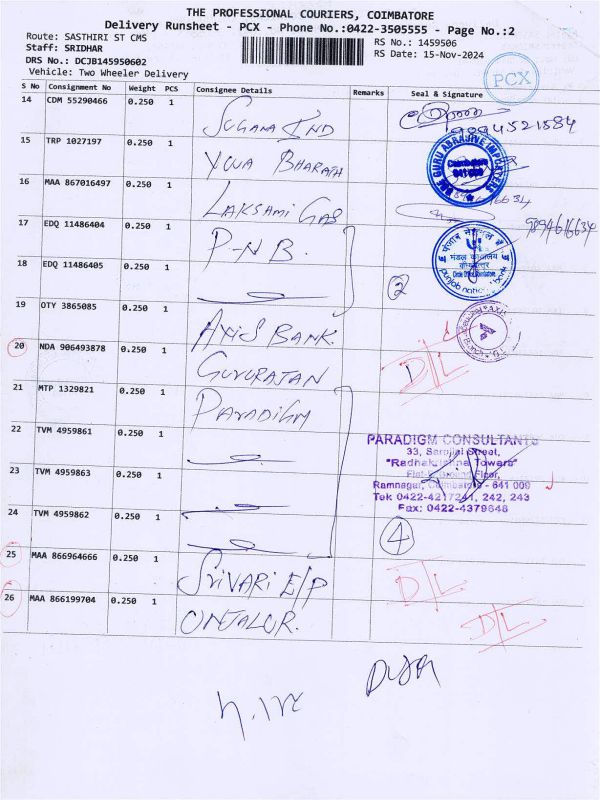 THE PROFESSIONAL COURIERS, COIMBATORE
Delivery Runsheet - PCX - Phone No.:0422-3505555 - Page No.:2
Route: SASTHIRI ST CMS
RS No.: 1459506
Staff: SRIDHAR
RS Date: 15-Nov-2024
DRS No.: DCJB145950602
Vehicle: Two Wheeler Delivery
PCX
S No Consignment No Weight PCS Consignee Details Remarks Seal & Signature
14 CDM 55290466 0.250 1 SUGANA IND
9894521584
15 TRP 1027197 0.250 1 YUVA BHARATH
GURU ABRASIVE IMPORTERS
Coimbatore
16 MAA 867016497 0.250 1 LAKSHMI GAS
9894616634
17 EDQ 11486404 0.250 1 P-N B.
18 EDQ 11486405 0.250 1
2
पंजाब नैशनल बैंक
मंडल कार्यालय
punjab national bank
19 OTY 3865085 0.250 1 AXIS BANK
20 NDA 906493878 0.250 1 GURURAJAN D/L
21 MTP 1329821 0.250 1 PARADIGM
22 TVM 4959861 0.250 1
PARADIGM CONSULTANTS
33, Sarojini Street,
"Radhakrishna Towers"
Floor,
Ramnagar, Coimbatore - 641 009
Tel: 0422-4217241, 242, 243
Fax: 0422-4379648
23 TVM 4959863 0.250 1
24 TVM 4959862 0.250 1
4
25 MAA 866964666 0.250 1 SRIVARI E/P D/L
26 MAA 866199704 0.250 1 ONJALUR. D/L